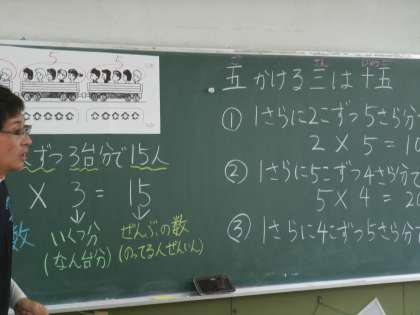 5 5
ずつ3台分で15人
× 3 = 15
数 いくつ分 ぜんぶの数
(なん台分) (のってる人ぜんいん)
五かける三は十五
① 1さらに2こずつ5さら分
2 × 5 = 10
② 1さらに5こずつ4さら分で
5 × 4 = 20
③ 1さらに4こずつ5さら分で